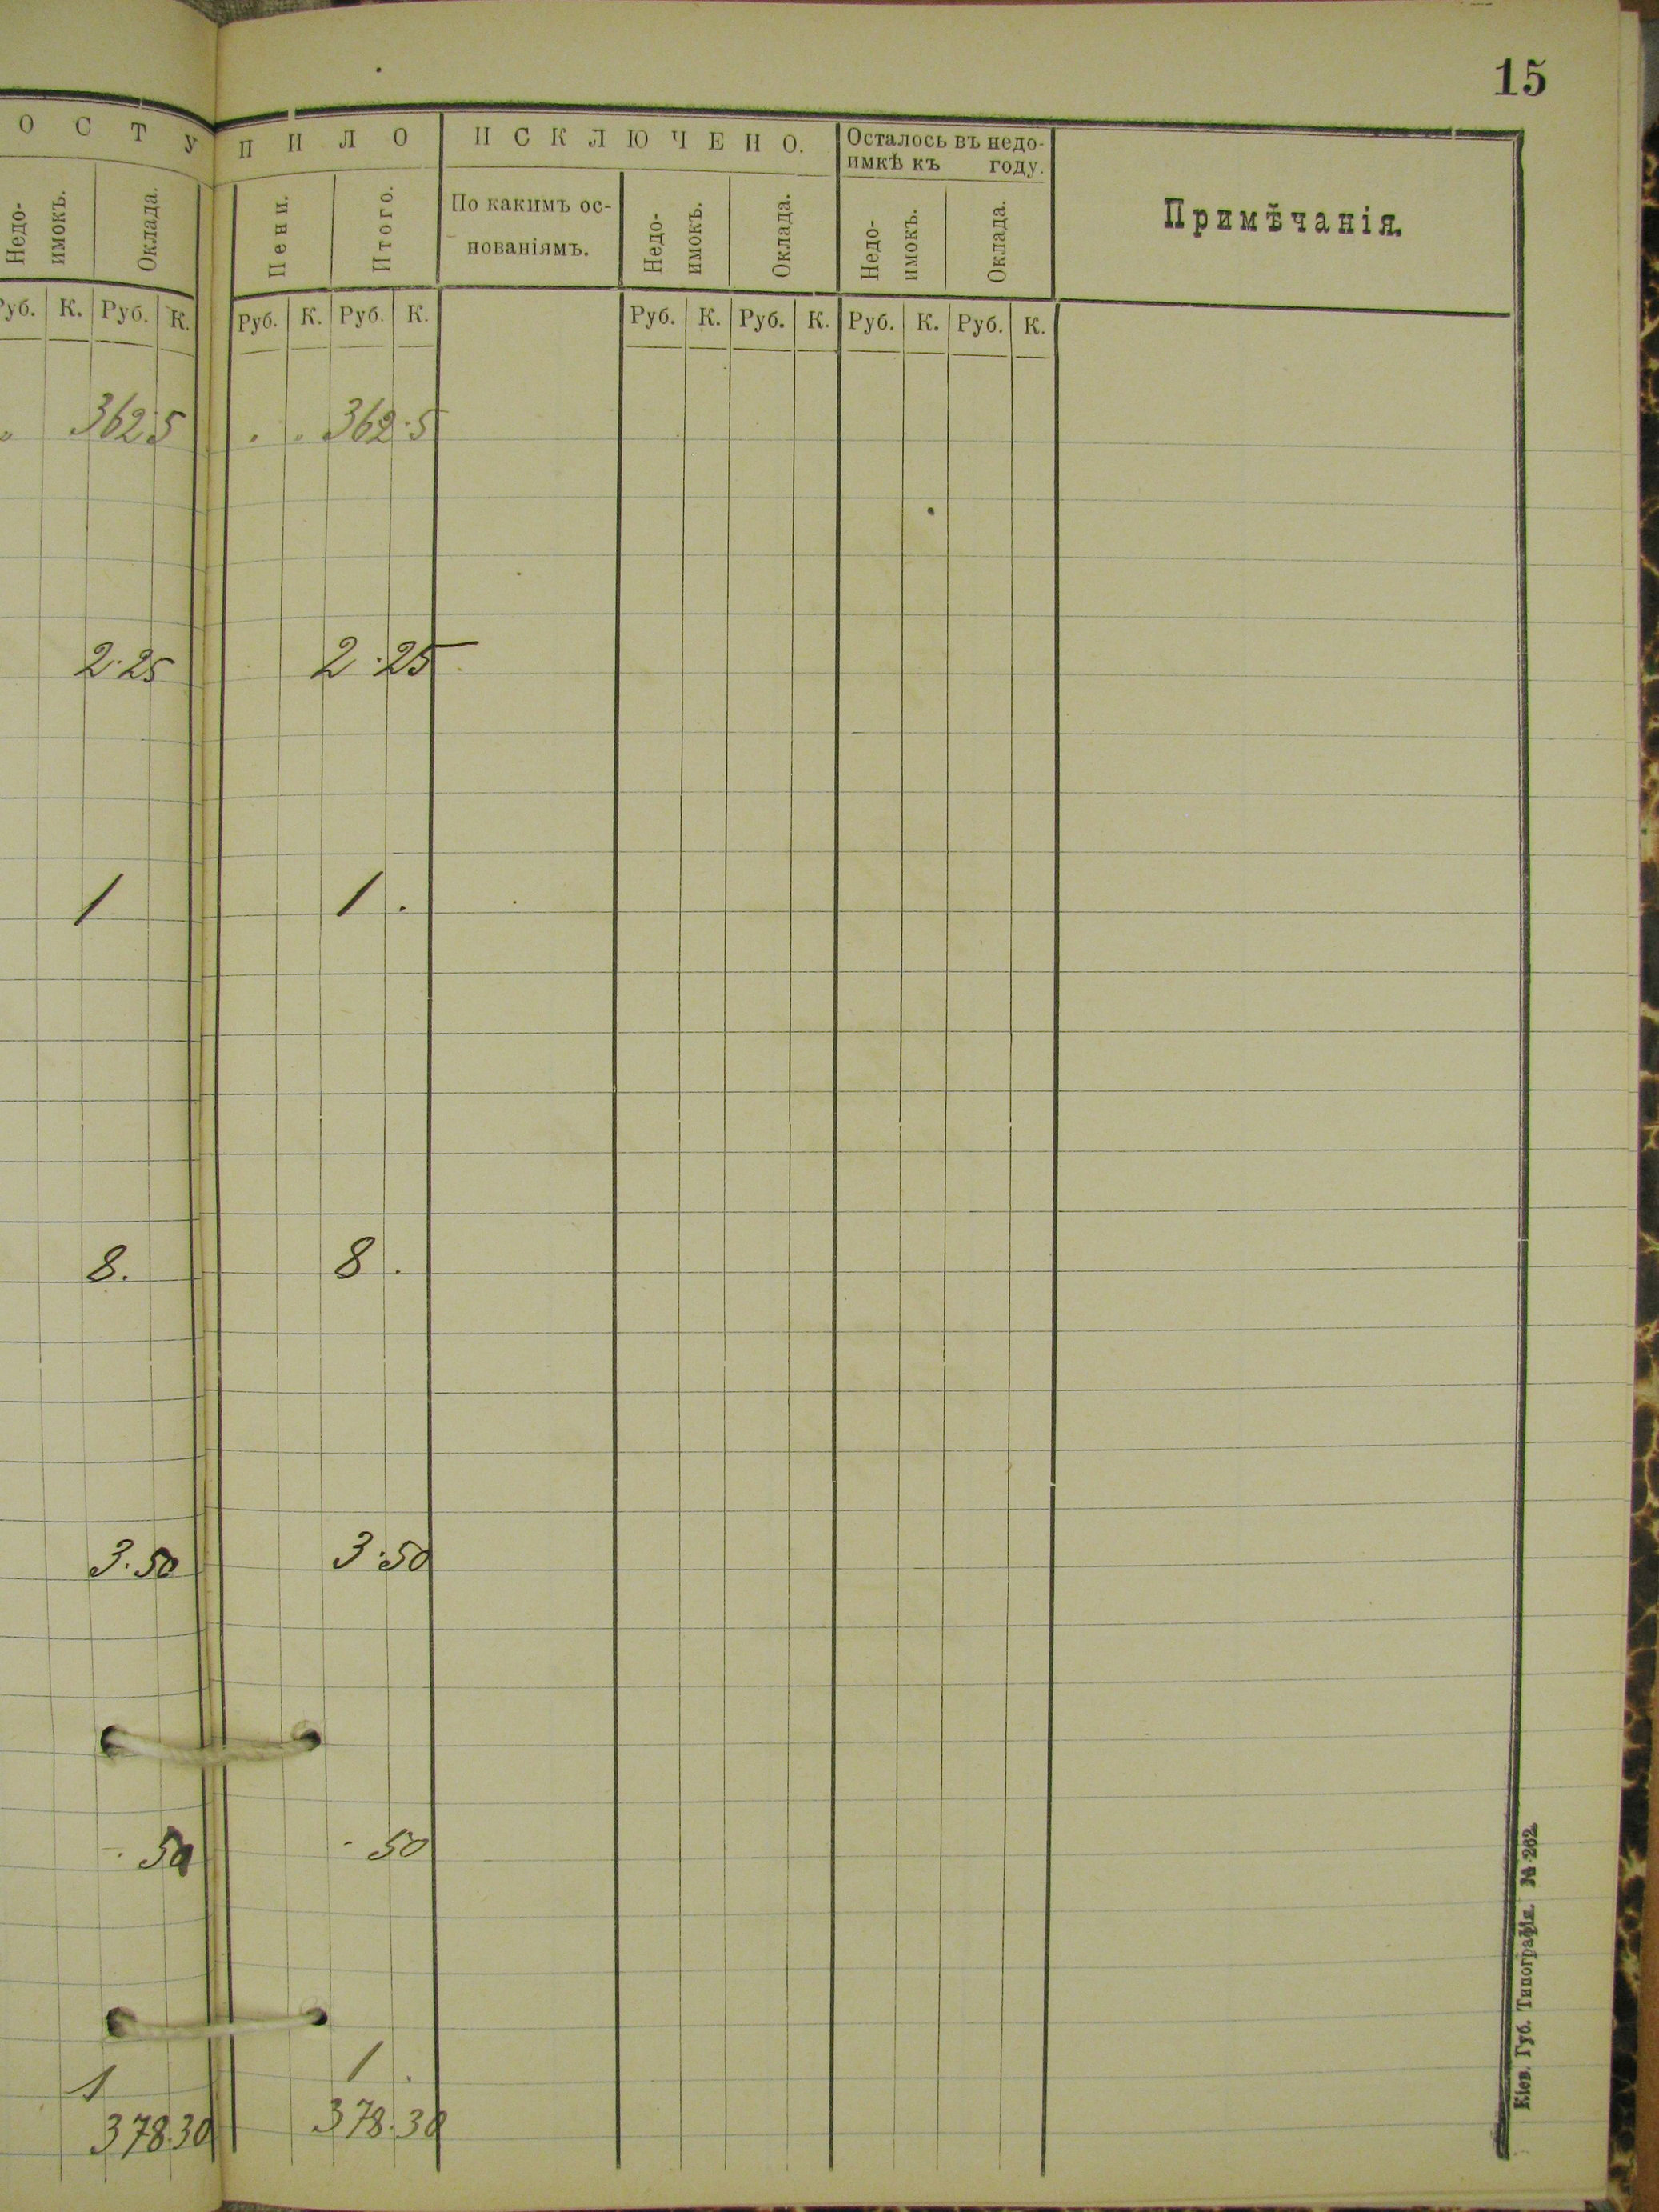 15
ОСТУПИЛО
ИСКЛЮЧЕНО.
Осталось въ недо-
имкѣ къ году.
Примѣчанія.
Недо-
имокъ.
Оклада.
Пени.
Итого.
По какимъ ос-
нованіямъ.
Недо-
имокъ.
Оклада.
Недо-
имокъ.
Оклада.
Руб. К. Руб. К. Руб. К. Руб. К. Руб. К. Руб. К. Руб. К. Руб. К.
362 5 362 . 5
2 . 25 2 . 25
1 1 .
8 . 8 .
3 . 50 3 . 50
50 - 50
1 1 .
378 . 30 378 . 30
Кіев. Губ. Типографія. № 262.